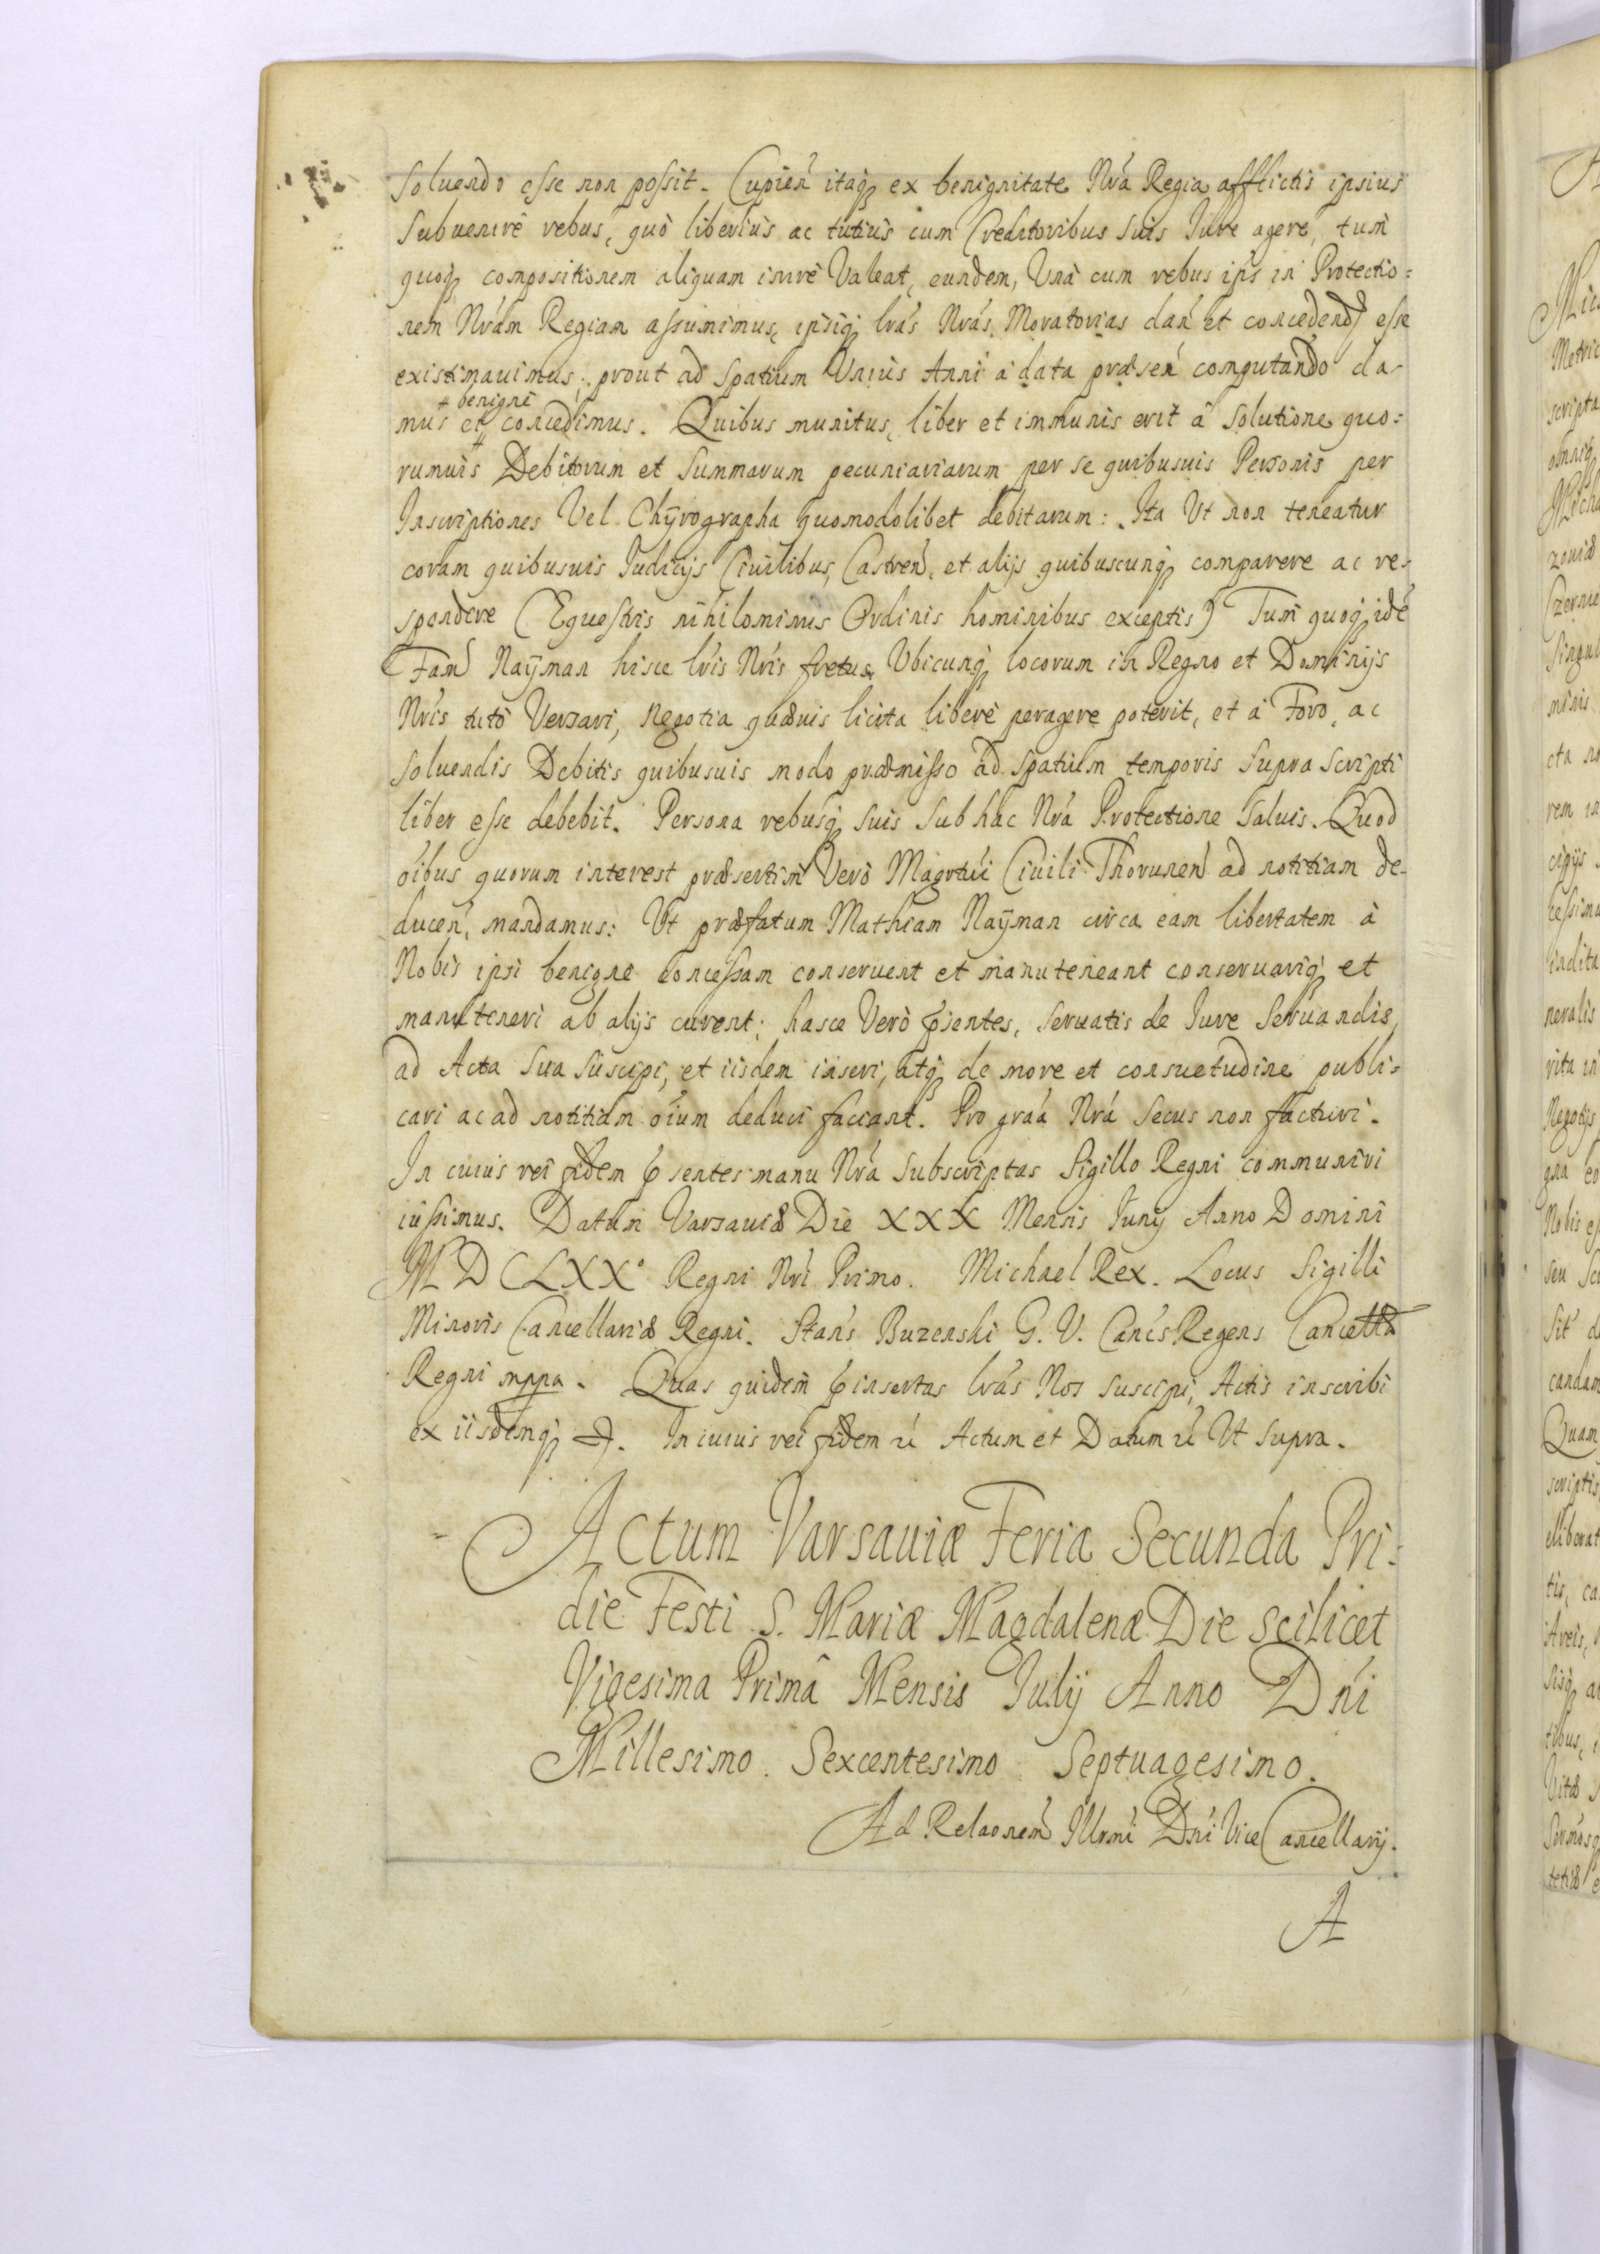 soluendo esse non possit. Cupień itaq̨ ex benignitate Nrá Regia afflictis ipsius
subuenire rebus, quò liberiùs ac tutiùs cum Creditoribus suis Jure agere, tum
quoq̨ compositionem aliquam inire Valeat, eundem, Vnà cum rebus ipś in Protectio=
nem Nrám Regiam assumimus, ipsiq̨ lrás Nrás Moratorias dań et concedend esse
existimauimus, prout ad spatium Vnius Anni à data præseń computando da-
mus et + benignè concedimus. Quibus munitus, liber et immunis erit à solutione quo=
rumuis Debitorum et Summarum pecuniariarum per se quibusuis Personis per
Inscriptiones Vel Chÿrographa quomodolibet debitarum: Ita Vt non teneatur
coram quibusuis Judicijs Ciuilibus, Castreń, et alijs quibuscunq̨ comparere ac re-
spondere (Equestris nihilominus Ordinis hominibus exceptis) Tum quoq̨ idé
Fam Naÿman hisce lris Nris fretus, Vbicunq̨ locorum in Regno et Dominijs
Nris tutò Versari, Negotia quæuis licita liberè peragere poterit, et à Foro, ac
soluendis Debitis quibusuis modo præmisso ad spatium temporis supra scripti
liber esse debebit. Persona rebusq̨ suis sub hac Nrá Protectione saluis. Quod
óibus quorum interest præsertim Verò Magrtui Ciuili Thoruneń ad notitiam de-
duceń, mandamus: Vt præfatum Mathiam Naÿman circa eam libertatem à
Nobis ipsi benignè concessam conseruent et manuteneant conseruariq̨ et
manuteneri ab alijs curent; hasce Verò pśentes, seruatis de Jure seruandis,
ad Acta sua suscipi, et iisdem inseri, atq̨ de more et consuetudine publi=
cari ac ad notitiam óium deduci faciant. Pro graá Nrá secus non facturi.
In cuius rei fidem pśentes manu Nrá subscriptas Sigillo Regni communiri
iussimus. Datum Varsauiæ Die XXX Mensis Junij Anno Domini
MDCLXX° Regni Nri Primo. Michael Rex. Locus Sigilli
Minoris Cancellariæ Regni. Stańs Buzenski G. V. Cańcs Regens Cancellæ
Regni mppa. Quas quidem pinsertas lrás Nos suscipi, Actis inscribi
ex iisdemq̨ In cuius rei fidem Actum et Datum Vt supra.
Actum Varsauiæ Feria Secunda Pri=
die Festi S. Mariæ Magdalenæ Die scilicet
Vigesima Primâ Mensis Julij Anno Dńi
Millesimo Sexcentesimo Septuagesimo.
Ad Relaonem Illrmi Dńi Vice Cancellarij.
A